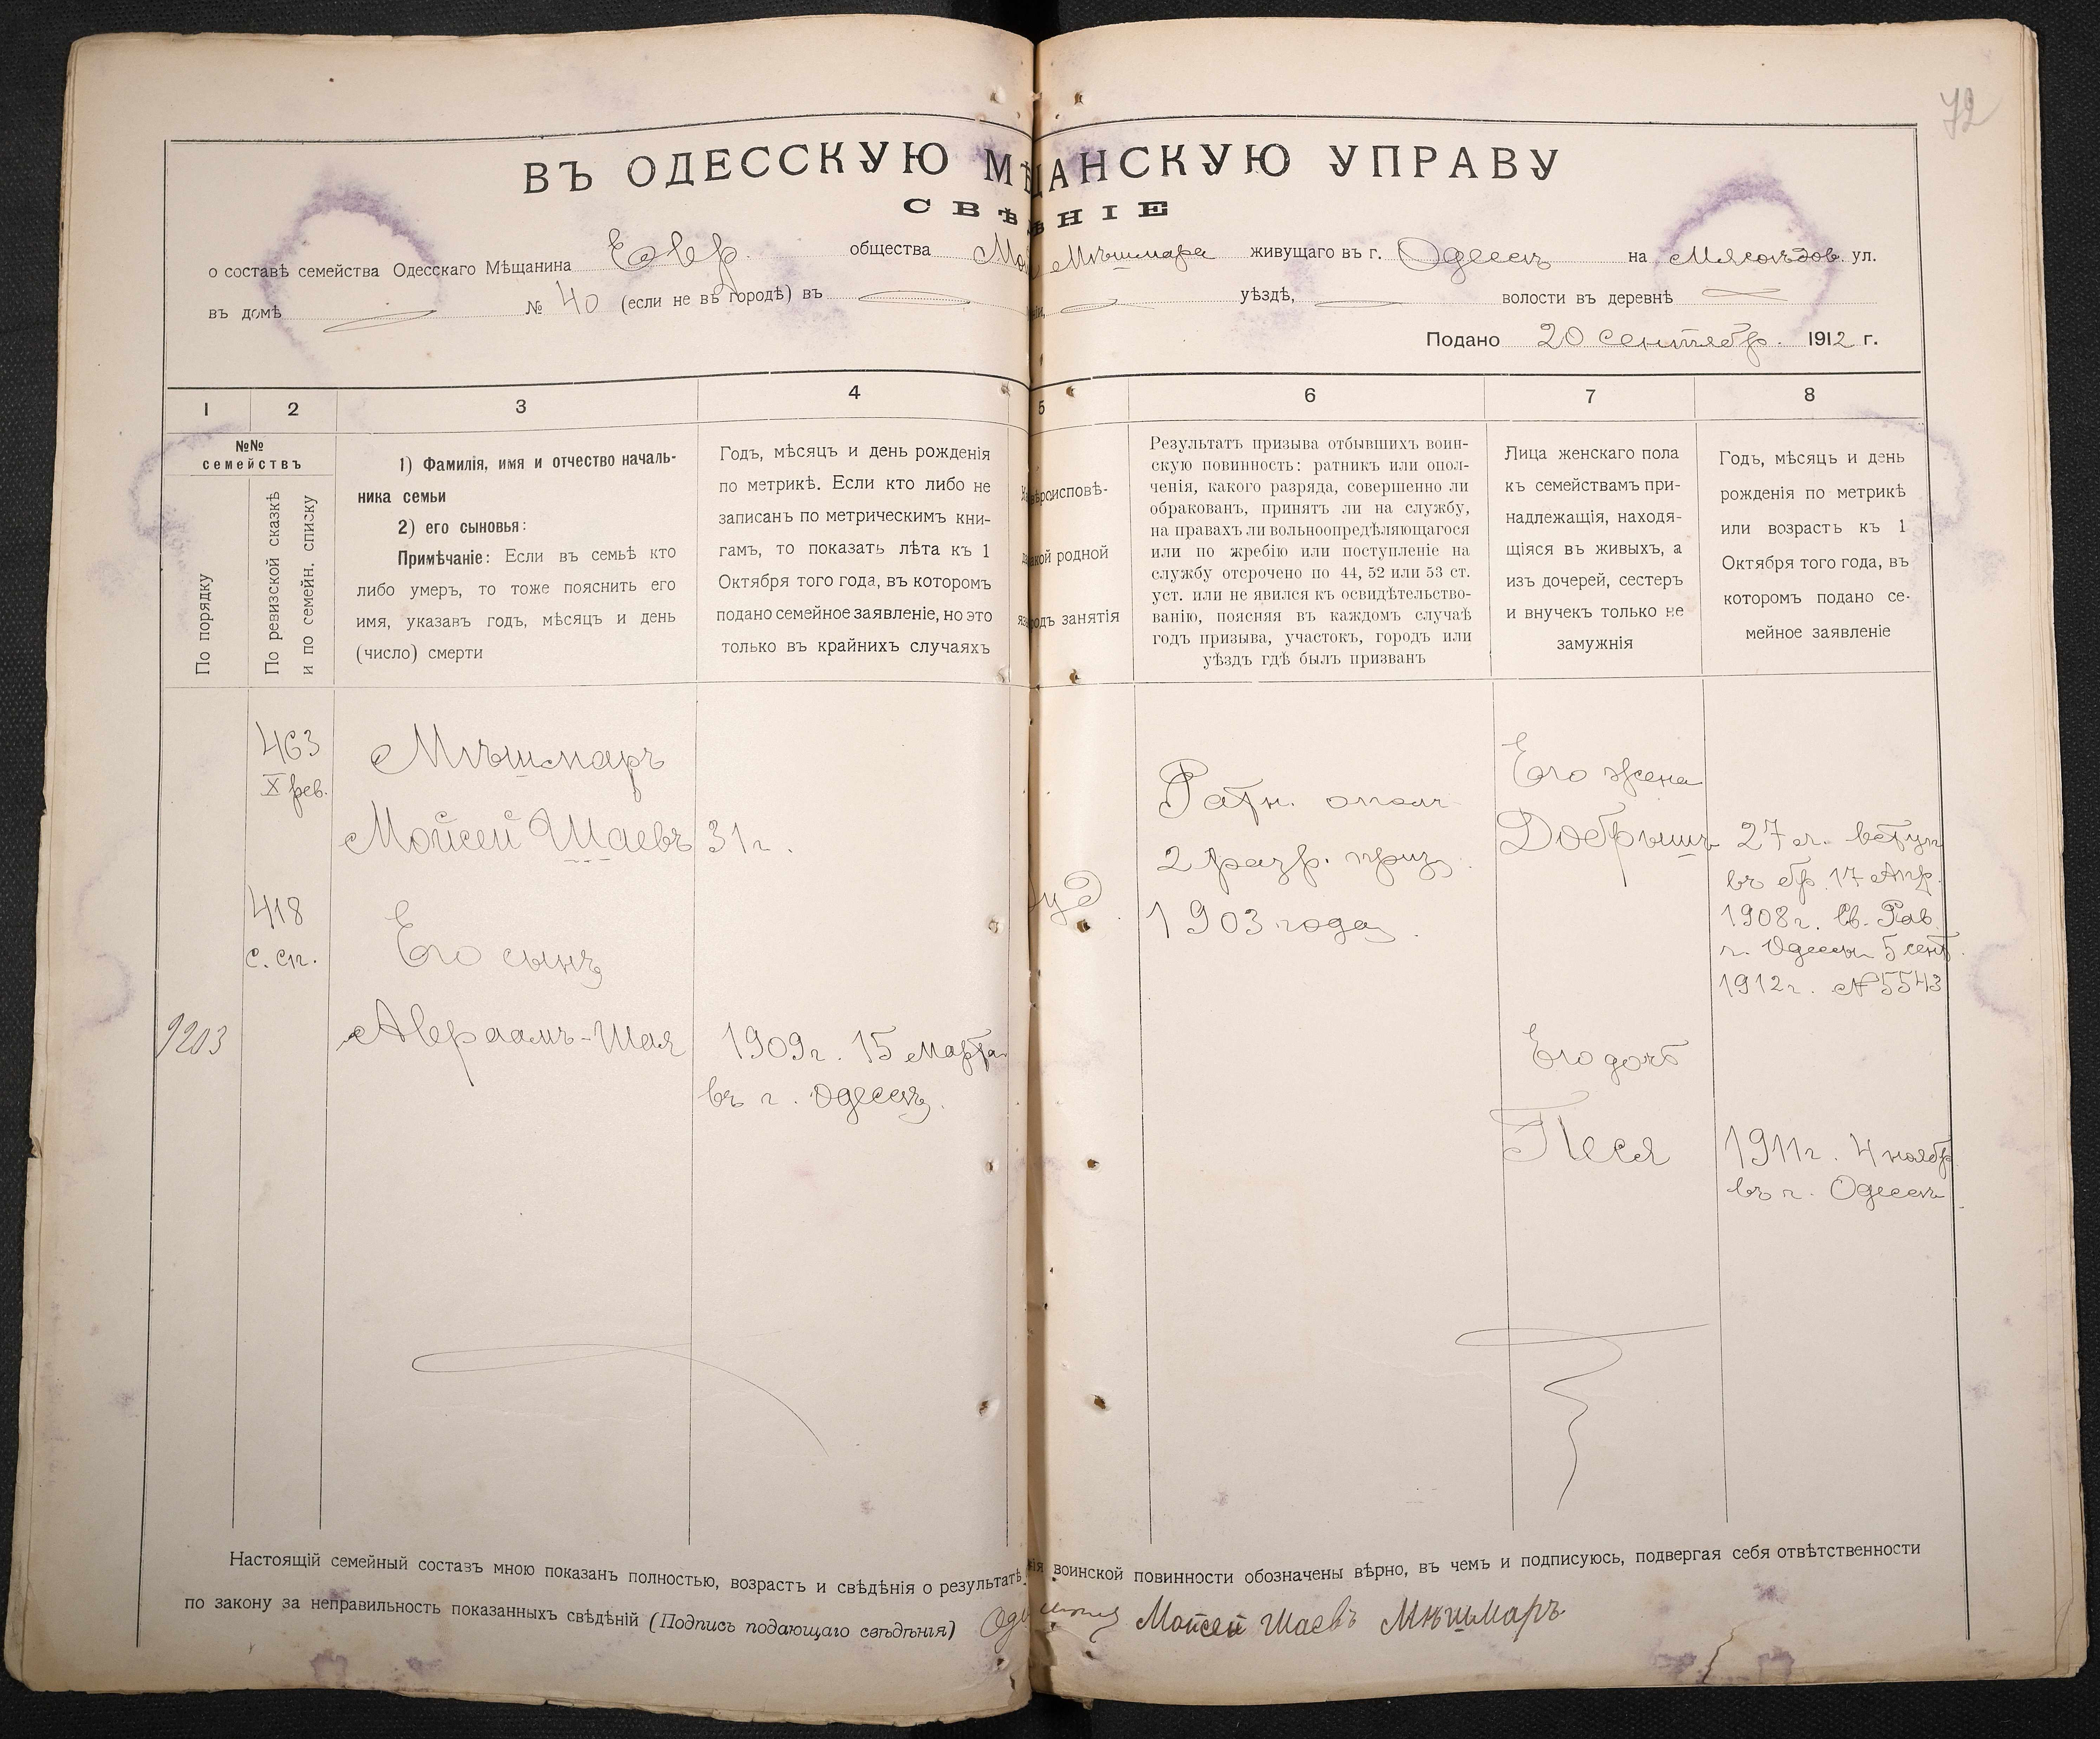 72
ВЪ ОДЕССКУЮ МѢЩАНСКУЮ УПРАВУ
СВѢ НІЕ
о составѣ семейства Одесскаго Мѣщанина Евр. общества Мо Мѣшмара живущаго въ г. Одессѣ на Мясоѣдов. ул.
въ домѣ № 40 (если не въ городѣ) въ уѣздѣ, волости въ деревнѣ
Подано 20 сентябр. 1912 г.
1 2 3 4 5 6 7 8
№№
семействъ
По порядку
По ревизской сказкѣ
и по семейн. списку
1) Фамилія, имя и отчество началь-
ника семьи
2) его сыновья:
Примѣчаніе: Если въ семьѣ кто
либо умеръ, то тоже пояснить его
имя, указавъ годъ, мѣсяцъ и день
(число) смерти
Годъ, мѣсяцъ и день рожденія
по метрикѣ. Если кто либо не
записанъ по метрическимъ кни-
гамъ, то показать лѣта къ 1
Октября того года, въ которомъ
подано семейное заявленіе, но это
только въ крайнихъ случаяхъ
вѣроисповѣ-
акой родной
родъ занятія
Результатъ призыва отбывшихъ воин-
скую повинность: ратникъ или опол-
ченія, какого разряда, совершенно ли
обракованъ, принятъ ли на службу,
на правахъ ли вольноопредѣляющагося
или по жребію или поступленіе на
службу отсрочено по 44, 52 или 53 ст.
уст. или не явился къ освидѣтельство-
ванію, поясняя въ каждомъ случаѣ
годъ призыва, участокъ, городъ или
уѣздъ гдѣ былъ призванъ
Лица женскаго пола
къ семействамъ при-
надлежащія, находя-
щіяся въ живыхъ, а
изъ дочерей, сестеръ
и внучекъ только не
замужнія
Годъ, мѣсяцъ и день
рожденія по метрикѣ
или возрастъ къ 1
Октября того года, въ
которомъ подано се-
мейное заявленіе
463
X рев.
418
с. сп.
9203
Мѣшмаръ
Мойсей Шаевъ
Его сынъ
Авраамъ-Шая
31 г.
1909 г. 15 марта
въ г. Одессѣ.
Іуд
Ратн. ополч
2 разр. приз.
1903 года.
Его жена
Добрышъ
Его дочь
Песя
27 л. вступ
въ бр. 17 Апр.
1908 г. Св. Рав.
г. Одессы 5 сент.
1912 г. № 5543
1911 г. 4 ноябр
въ г. Одессѣ
Настоящій семейный составъ мною показанъ полностью, возрастъ и свѣдѣнія о результатѣ нія воинской повинности обозначены вѣрно, въ чемъ и подписуюсь, подвергая себя отвѣтственности
по закону за неправильность показанныхъ свѣдѣній (Подпись подающаго свѣдѣнія) Мойсей Шаевъ Мѣшмаръ